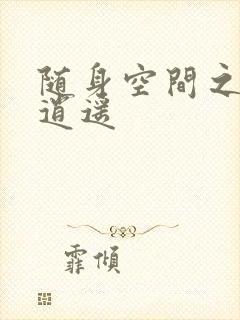 随身空間之
逍遥
霏傾